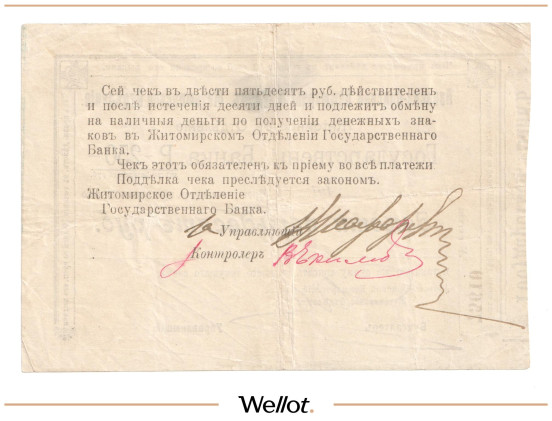 Сей чекъ въ двѣсти пятьдесятъ руб. дѣйствителенъ
и послѣ истеченія десяти дней и подлежитъ обмѣну
на наличныя деньги по полученіи денежныхъ зна-
ковъ въ Житомирскомъ Отдѣленіи Государственнаго
Банка.
Чекъ этотъ обязателенъ къ пріему во всѣ платежи
Поддѣлка чека преслѣдуется закономъ.
Житомирское Отдѣленіе
Государственнаго Банка.
Управляющій
Контролеръ
Wellot.